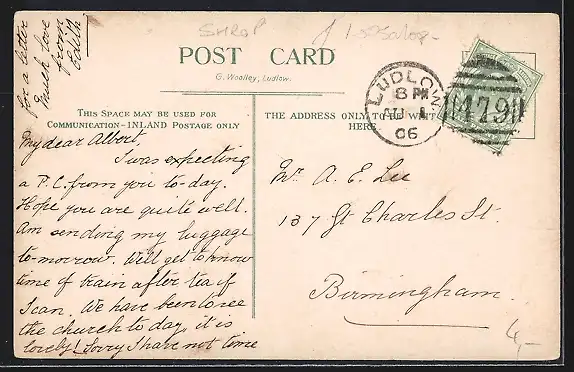 SHROP
POST CARD
G. Woolley, Ludlow.
THIS SPACE MAY BE USED FOR
COMMUNICATION–INLAND POSTAGE ONLY
THE ADDRESS ONLY TO BE WRIT
HERE
LUDLOW
8 PM
AU 1
06
479
My dear Albert,
I was expecting
a P.C. from you to-day.
Hope you are quite well.
Am sending my luggage
to-morrow. Will get to know
time of train after tea if
I can. We have been to see
the church to day, it is
lovely! Sorry I have not time
for a letter
Much love
from
Edith
Mr A. E. Lee
137 St Charles St.
Birmingham.
4,-